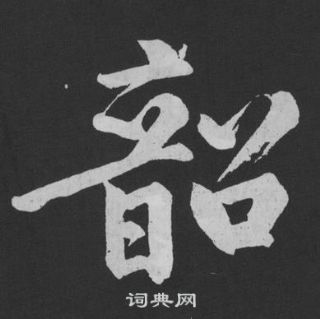 韶
词典网